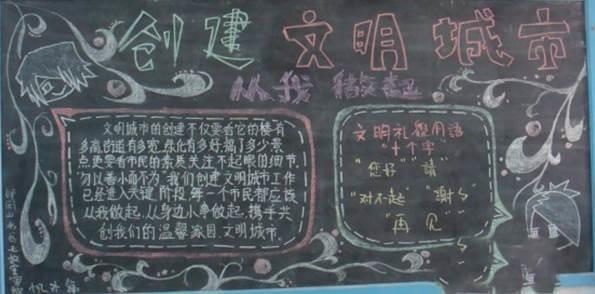 创建 文明城市
从我做起
文明城市的创建不仅要看它的楼有
多高街道有多宽,绿化有多好,搞了多少景
点更要看市民的素质关注不起眼的细节,
勿以善小而不为,我们创建文明城市工作
已经进入关键阶段,每一个市民都应该
从我做起,从身边小事做起,携手共
创我们的温馨家园,文明城市.
文明礼貌用语
"十个字"
"您好" "请"
"对不起" "谢"
"再见"